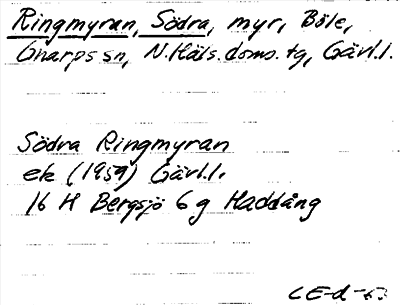 Ringmyran, Södra, myr, Böle,
Gnarps sn, N. Häls. doms. tg, Gävl. l.
Södra Ringmyran
ek (1959) Gävl. l.
16 H Bergsjö 6 g Haddång
CE-d-63